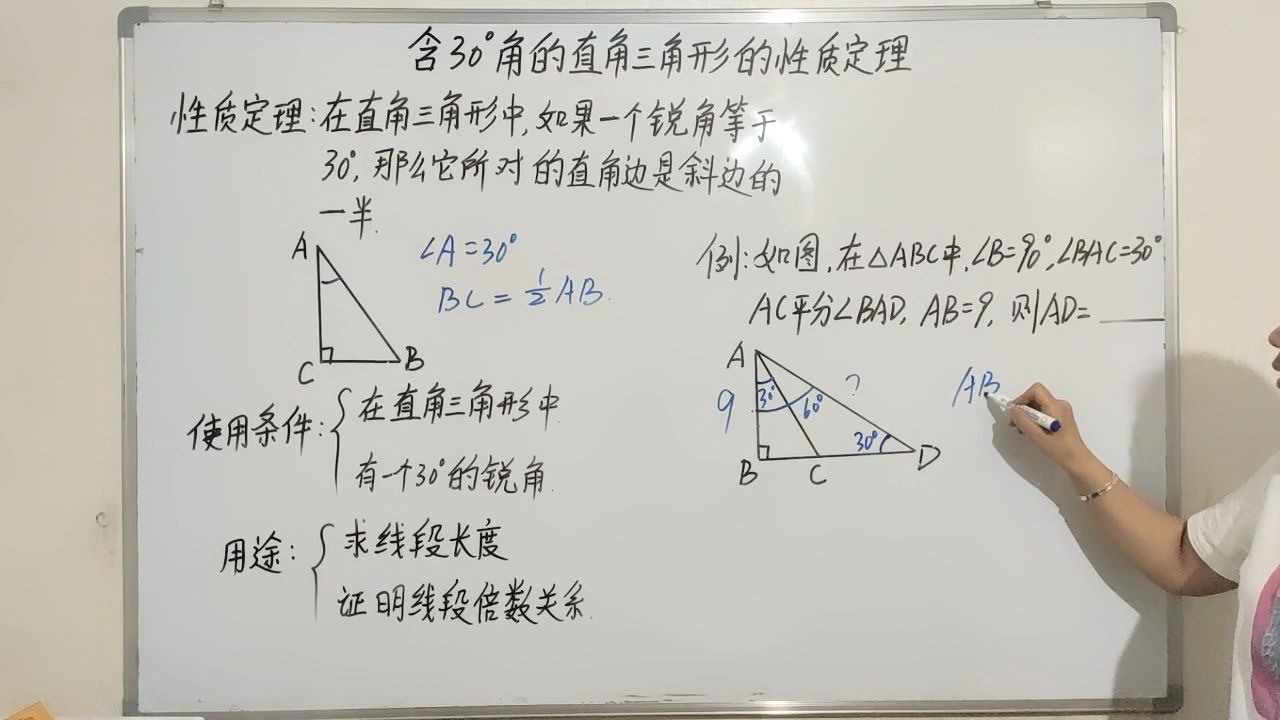 含30°角的直角三角形的性质定理
性质定理:在直角三角形中,如果一个锐角等于
30°,那么它所对的直角边是斜边的
一半.
A
C
B
∠A=30°
BC=½AB.
使用条件:
在直角三角形中
有一个30°的锐角.
用途:
求线段长度
证明线段倍数关系.
例:如图,在△ABC中,∠B=90°,∠BAC=30°
AC平分∠BAD, AB=9, 则AD=____
A
9
30°
60°
?
30°
B
C
D
AB